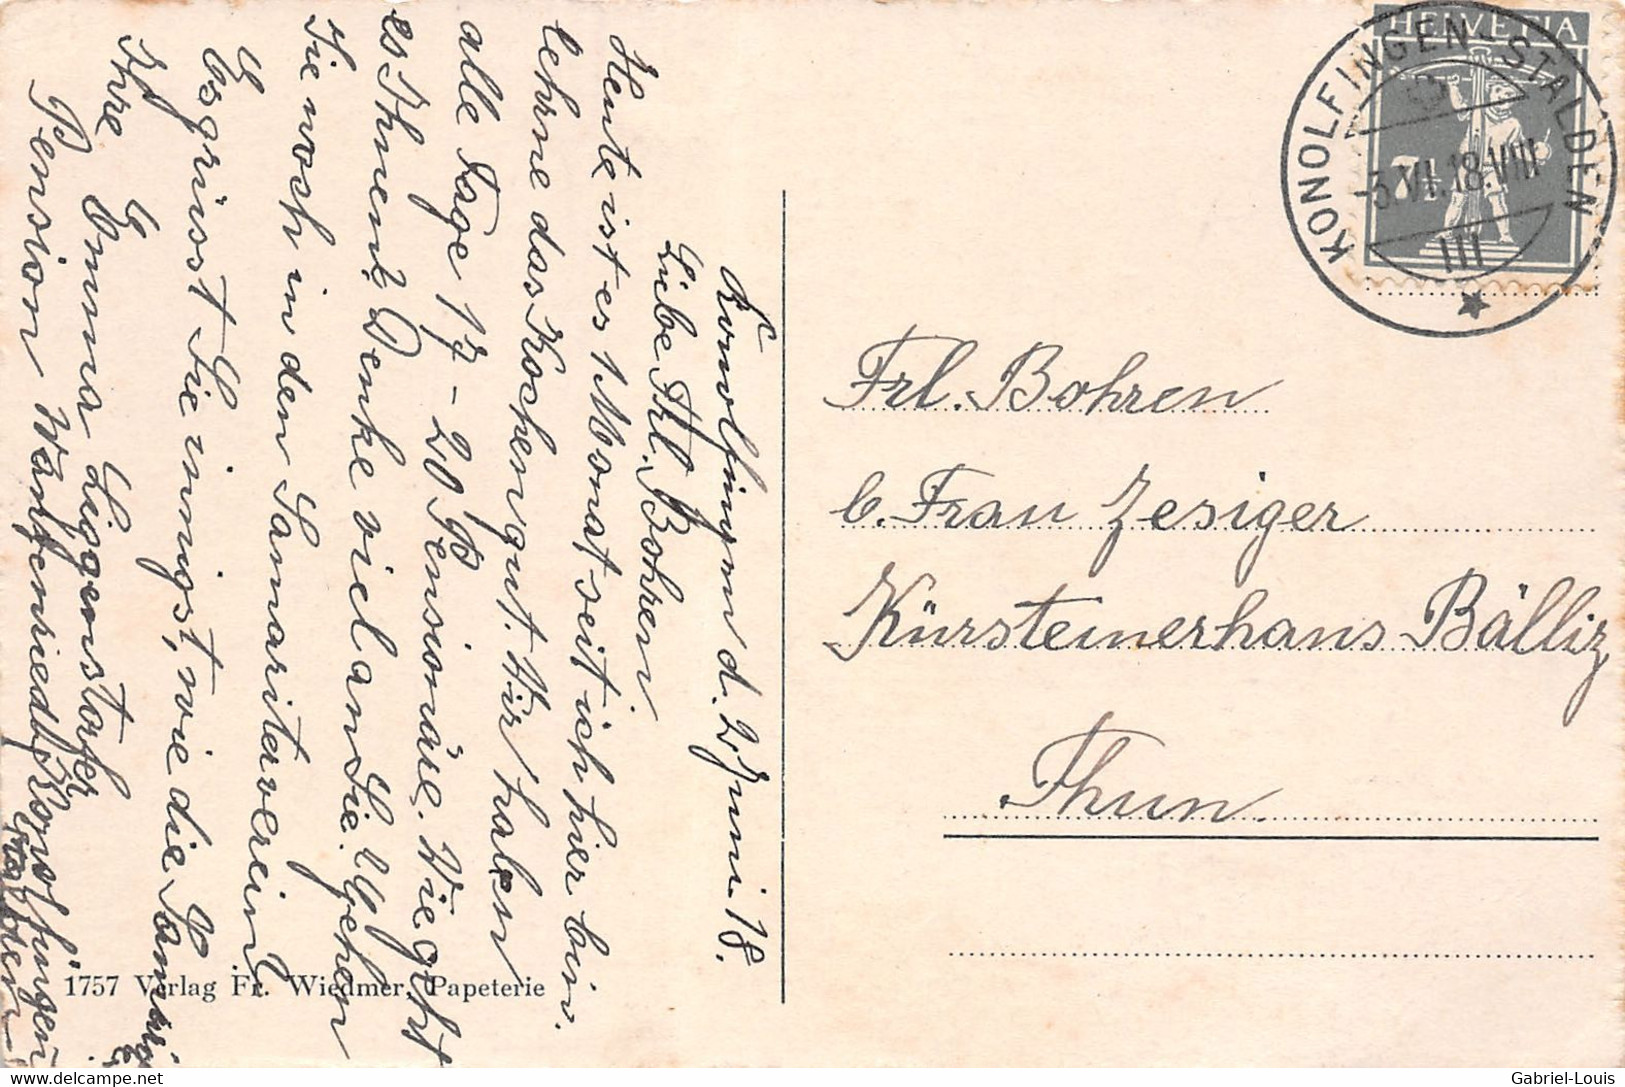 Konolfingen d. 2 Juni 18.
Liebe Frl. Bohren!
Heute ist es 1 Monat seit ich hier bin.
lehrne das Kochen gut. Wir haben
alle Tage 17 - 20 Pensionäre. Wie geht
es Ihnen? Denke viel an Sie.
gehen
Sie noch in den Samariterverein?
Es grüsst Sie innigst, wie die
Ihre Emma
Pension
HELVETIA
7½
KONOLFINGEN-STALDEN
-3.VI.18.VIII
III
Frl. Bohren
b. Frau Zesiger
Kürsteinerhaus Bälliz
Thun.
1757 Verlag Fr. Wiedmer, Papeterie
Gabriel-Louis